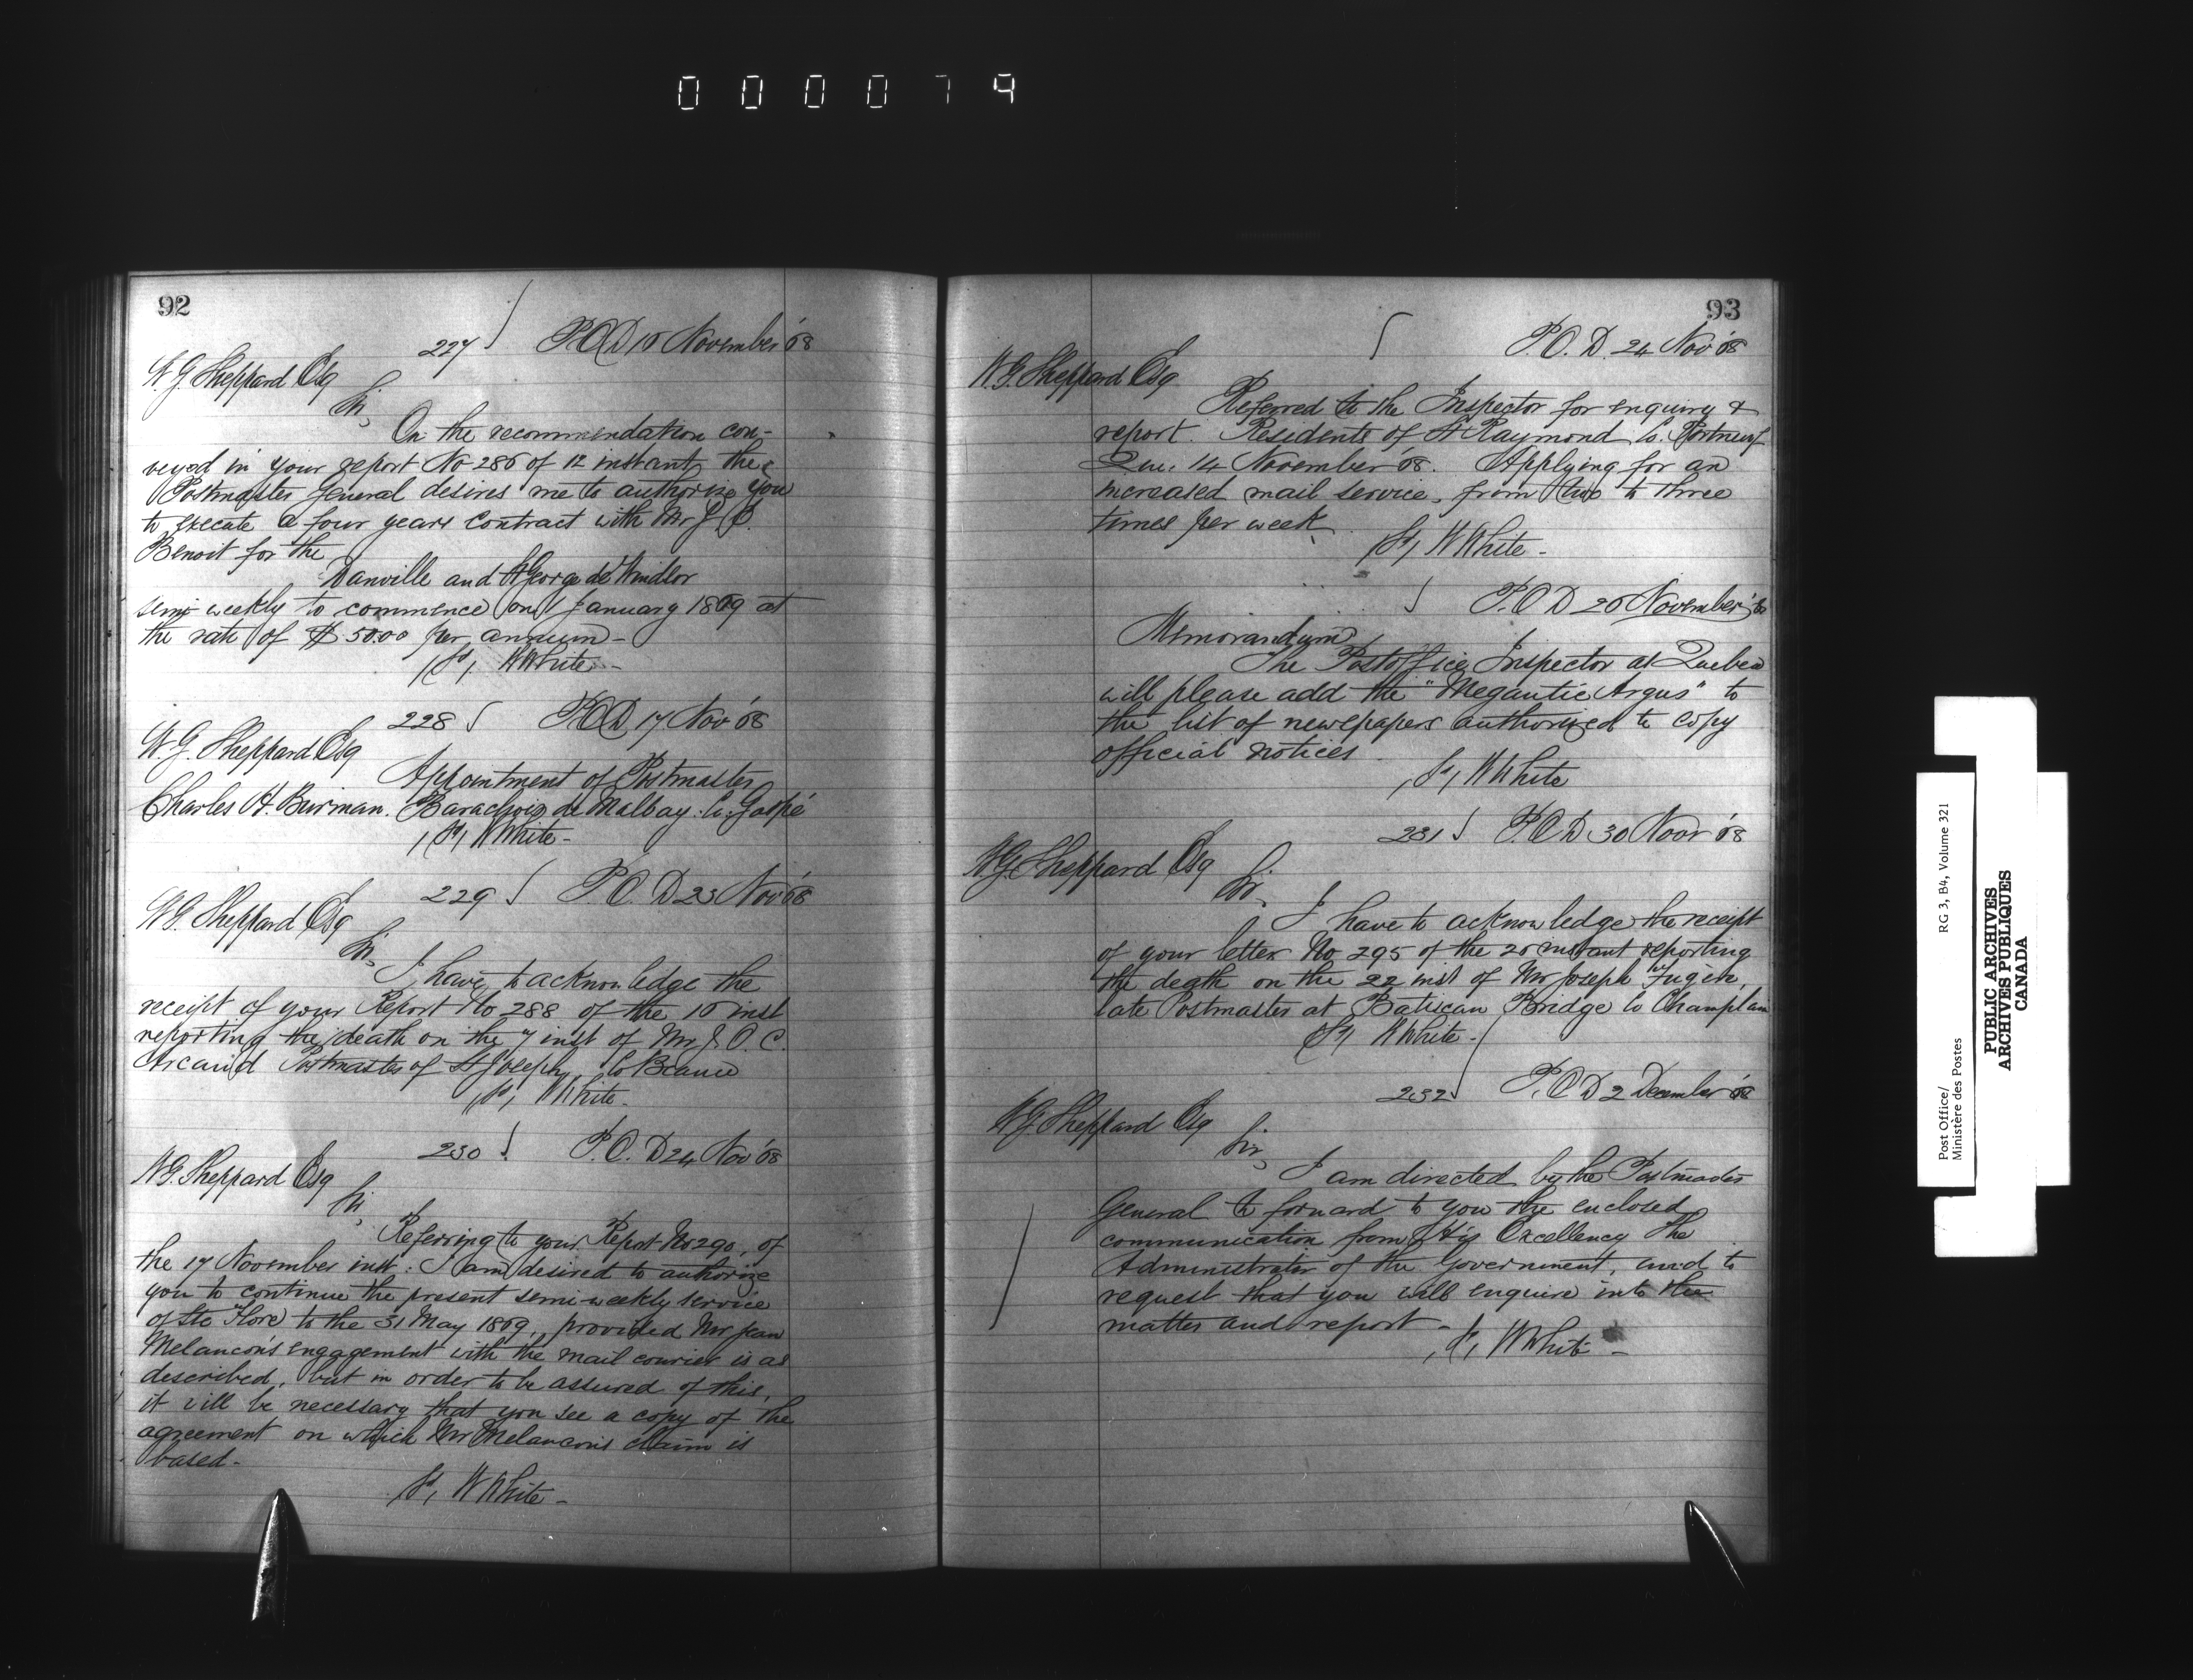 000079
92
227 P.O.D 16 November '68
W. G. Sheppard Esq
Sir,
On the recommendation con-
veyed in your report No 286 of 12 instant, the
Postmaster General desires me to authorize you
to execute a four years contract with Mr J. B.
Benoit for the
Danville and St George de Windsor
semi weekly to commence on 1 January 1869 at
the rate of $50.00 per annum -
/Sd/ W White -
228 P.O.D 17 Nov '68
W. G. Sheppard Esq
Appointment of Postmaster
Charles H. Burman. Barachois de Malbay. Co. Gaspé
/Sd/ W White -
229 P.O.D 23 Nov '68
W G. Sheppard Esq
Sir,
I have to acknowledge the
receipt of your Report No 288 of the 16 inst
reporting the death on the 7 inst of Mr J. O. C.
Arcand Postmaster of St Joseph, Co Beauce
/Sd/ W White -
230 P.O.D 24 Nov '68
W G. Sheppard Esq
Sir,
Referring to your Report No 290, of
the 17 November inst: I am desired to authorize
you to continue the present semi-weekly service
of Ste Flore to the 31 May 1869, provided Mr Jean
Melancon's engagement with the mail courier is as
described, but in order to be assured of this,
it will be necessary that you see a copy of the
agreement on which Mr Melancon's claim is
based -
/Sd/ W White -
93
P.O.D. 24 Nov '68
W. G. Sheppard Esq
Referred to the Inspector for enquiry &
report. Residents of St Raymond Co. Portneuf
Que. 14 November '68. Applying for an
increased mail service, from two to three
times per week
/Sd/ W White -
P.O D 26 November '68
Memorandum
The Postoffice Inspector at Quebec
will please add the "Megantic Argus" to
the list of newspapers authorized to copy
official notices
/Sd/ W White
231 P.O D 30 Novr '68
W. G. Sheppard Esq
Sir,
I have to acknowledge the receipt
of your letter No 295 of the 26 instant reporting
the death on the 22 inst of Mr Joseph Fugère,
late Postmaster at Batiscan Bridge Co Champlain
/Sd/ W White -
232 P.O D 2 December '68
W G. Sheppard Esq
Sir,
I am directed by the Postmaster
General to forward to you the enclosed
communication from His Excellency the
Administrator of the Government, and to
request that you will enquire into the
matter and report -
/Sd/ W White -
Post Office/ RG 3, B4, Volume 321
Ministère des Postes
PUBLIC ARCHIVES
ARCHIVES PUBLIQUES
CANADA